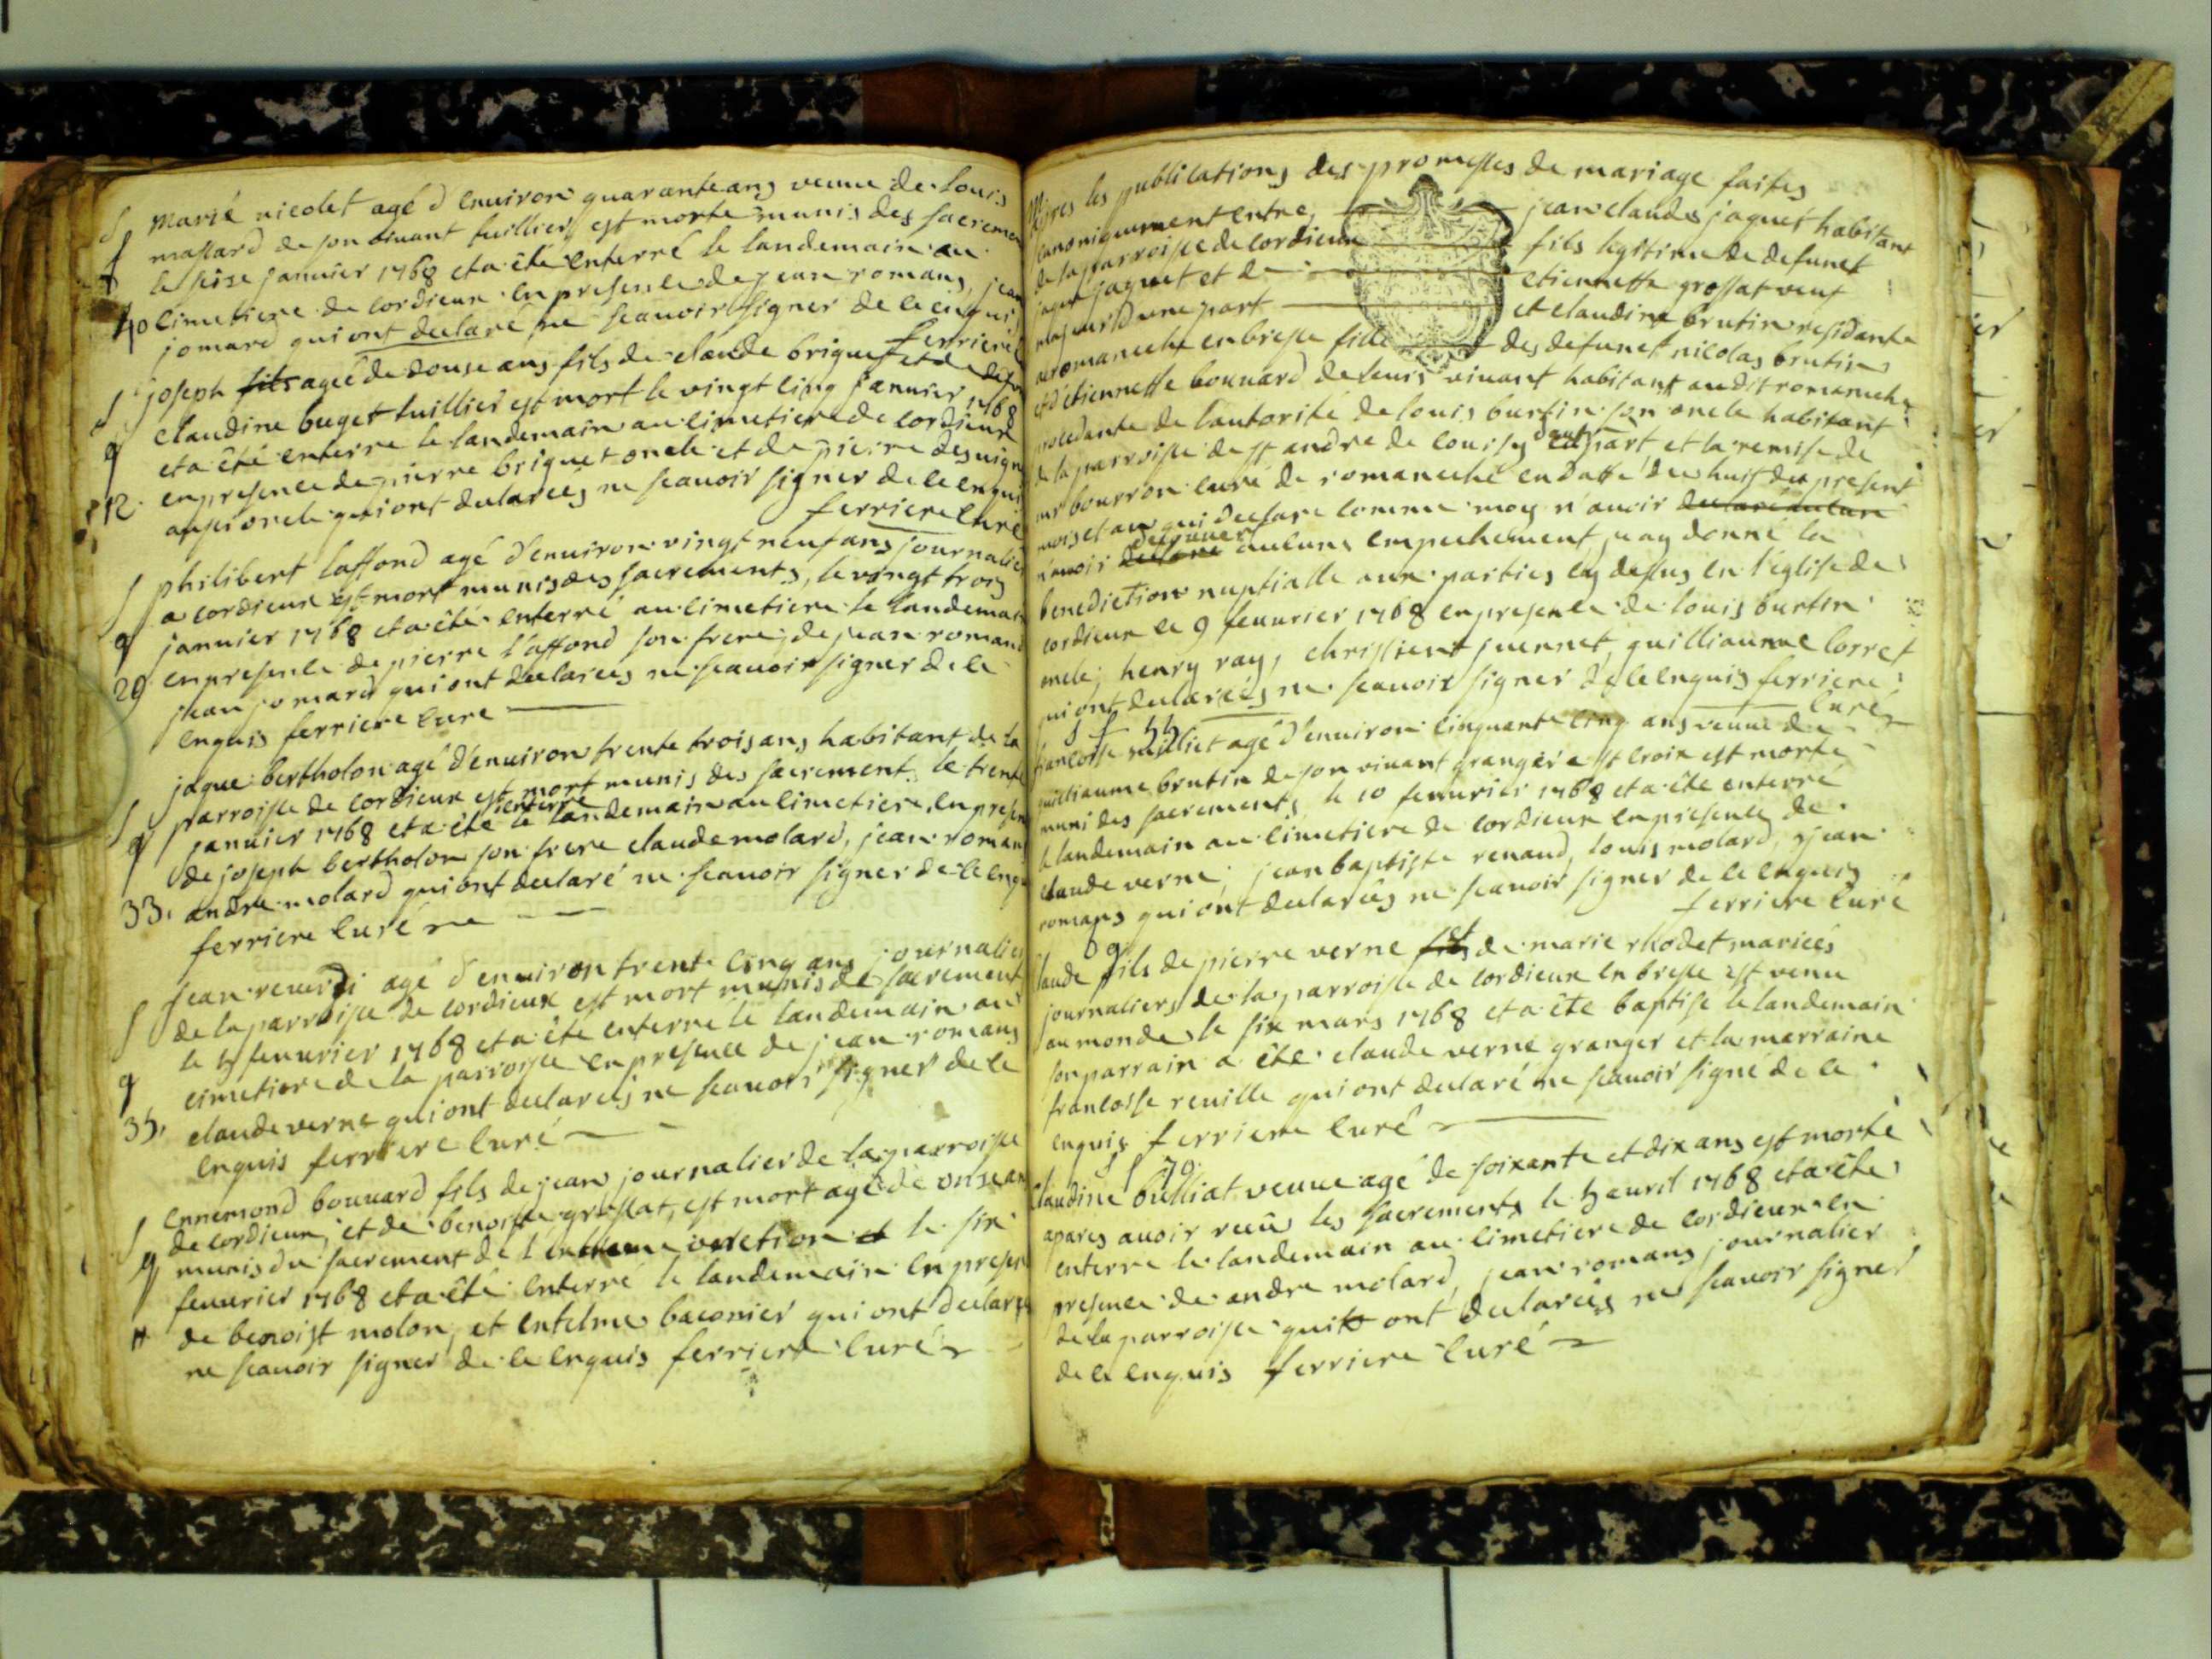 S marie nicolet agé d'enuiron quarante ans veuue de louis
f massard de son viuant tuillier est morte munis des sacremen
le seise januier 1768 et a été enterré le landemain au
40 cimetiere de cordieux en presence de jean romans, jean
jomard qui ont declaré ne scauoir signer de ce enquis
ferriere
S joseph fils agée de douse ans fils de claude briquet et de
claudine buget tuillier est mort le vingt cinq januier 1768
g et a été enterre le landemain au cimetiere de cordieux
en presence de pierre briquet oncle et de pierre desuigne
12. aussi oncle qui ont declarées ne scauoir signer de ce enquis
ferriere curé
S philibert laffond agé d'enuiron vingt neuf ans journalier
a cordieux est mort munis des sacrements, le vingt trois
g januier 1768 et a été enterré au cimetiere le landemain
29 en presence de pierre laffond son frere, de jean romans
jean jomard qui ont declarees ne scauoir signer de ce
enquis ferriere curé
jaque bertholon agé d'enuiron trente trois ans habitant de la
S parroisse de cordieux est mort munis des sacrement, le trente
enterré
g januier 1768 et a été le landemain au cimetiere, en presen
de joseph bertholon son frere claude molard, jean romans
33. andre molard qui ont declaré ne scauoir signer de ce enqu
ferriere curé
jean reuerdi agé d'enuiron trente cinq ans journalier
S de la parroisse de cordieux est mort munis de sacrement
le 5 feuurier 1768 et a été enterré le landemain au
g cimetiere de la parroisse en presence de jean romans
35, claude verne qui ont declareés ne scauoir signer de ce
enquis ferriere curé
ennemond bouuard fils de jean journalier de la parroisse
S de cordieux, et de benoiste grossat, est mort agé de onse an
g munis du sacrement de l'extreme onction et le six
feuurier 1768 et a été enterré le landemain en presen
11 de benoist molon, et entelme baconier qui ont declaré
ne scauoir signer de ce enquis ferriere curé
Apres les publications des promesses de mariage faites
canoniquement entre jean claude jaquet habitant
de la parroisse de cordieux fils legitime de defunct
jaquet et de etiennette grossat veuf
majeur d'une part et claudine brutin residante
a romaneche en bresse fille des defunct nicolas brutin
et d'etiennette bouuard de leurs viuant habitant audit romaneche
procedante de l'autorité de louis burtin son oncle habitant
de la parroisse de st andre de d'autre part, et la remise de
mr bourron curé de romaneche en datte du huit du present
mois et an qui declare comme moy n'auoir declaré aucun
decouuert
n'auoir declaré aucuns empechement j'ay donné la
benediction nuptialle aux parties cy dessus en l'église de
cordieux ce 9 feuurier 1768 en presence de louis burtin
oncle, henry ray, juennet, guilliaume corret
qui ont declareés ne scauoir signer de ce enquis ferriere
curé
S f 55
francoise milliet agé d'enuiron cinquante cinq ans veuue de
guilliaume brutin de son viuant granger a st croix est morte
muni des sacrements le 10 feuurier 1768 et a été enterré
le landemain au cimetiere de cordieux en presence de
claude verne, jean baptiste renaud, louis molard, jean
romans qui ont declareés ne scauoir signer de ce enquis
ferriere curé
g et
claude fils de pierre verne fils de marie rhodet mariees
journaliers de la parroisse de cordieux en bresse est venu
au monde le six mars 1768 et a été baptise le landemain
son parrain a été claude verne granger et la marraine
francoise reuille qui ont declaré ne scauoir signé de ce
enquis ferriere curé
S f 70.
claudine bulliat veuue agé de soixante et dix ans est morte
apares auoir recûs les sacrements le 5 auril 1768 et a été
enterre le landemain au cimetiere de cordieux en
presence de andre molard, jean romans journalier
de la parroisse qui ont declareés ne scauoir signer
de ce enquis ferriere curé